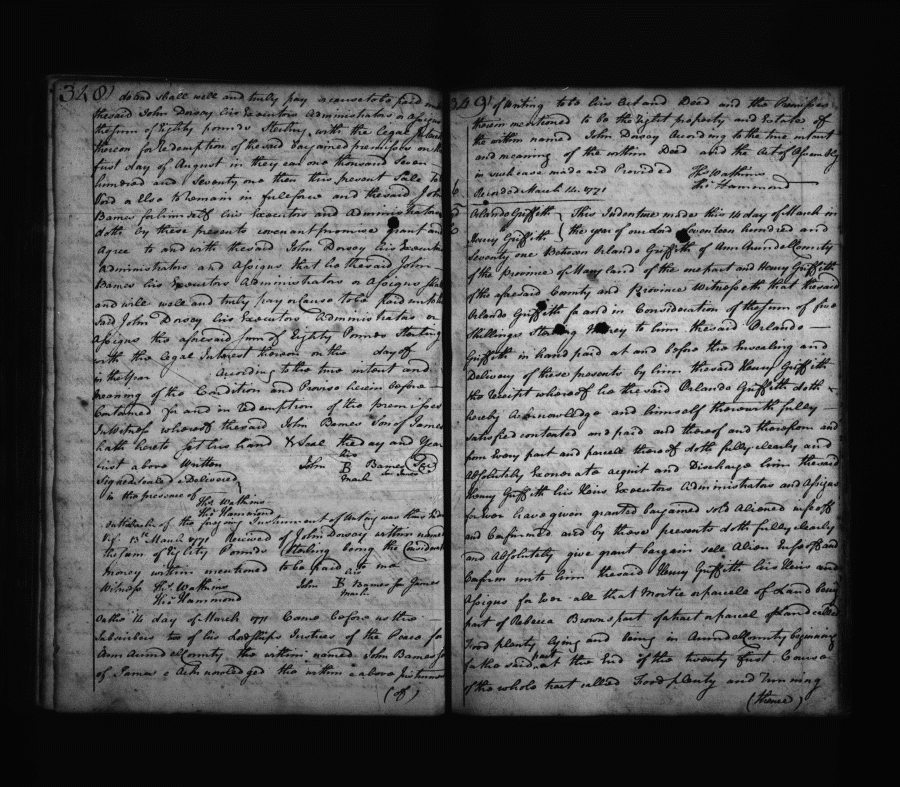 348) do and shall well and truly pay or cause to be paid unto
the said John Dorsey his Executors Administrators or assigns
the sum of Eighty pounds Sterling with the Legal Interest
thereon for Redemption of the said bargained premisses on the
first day of August in the year one thousand Seven
hundred and Seventy one then this present Sale to be
Void or Else to remain in full force and the said John
Barnes for himself his Executors and Administrators
doth by these presents covenant promise grant and
Agree to and with the said John Dorsey his Executors
Administrators and Assigns that he the said John
Barnes his Executors Administrators or Assigns shall
and will well and truly pay or cause to be paid unto the
said John Dorsey his Executors Administrators or
Assigns the aforesaid sum of Eighty Pounds Sterling
with the Legal Interest thereon on the day of
in the Year According to the true intent and
meaning of the Condition and Proviso herein before
Contained for and in Redemption of the premisses
In Witness whereof the said John Barnes Son of James
hath hereto set his hand & Seal the day and Year
first above Written
his
John B Barnes Seal
mark son James
Signed sealed & Delivered
in the presence of
Thos Watkins
Thos Hammond
on the back of the foregoing Instrument of writing was thus
Viz. 13th March 1771 Received of John Dorsey within named
the sum of Eighty Pounds Sterling being the Consideration
money within mentioned to be paid to me
his
Witness Thos Watkins John B Barnes for James
mark
Thos Hammond
On the 14 day of March 1771 Came before us the
Subscribers two of his Lordships Justices of the Peace for
Ann Arundel County the within named John Barnes
of James & Acknowledged the within & above Instrument
(of)
349) of writing to be his Act and Deed and the Premisses
therein mentioned to be the Right property and Estate of
the within named John Dorsey According to the true intent
and meaning of the within Deed and the Act of Assembly
in such case made and Provided Thos Watkins
Recorded March 14. 1771 Thos Hammond
Orlando Griffith This Indenture made this 14 day of March in
Henry Griffith the year of our Lord Seventeen hundred and
Seventy one Between Orlando Griffith of Ann Arundel County
of the Province of Maryland of the one part and Henry Griffith
of the aforesaid County and Province Witnesseth that the said
Orlando Griffith for and in Consideration of the sum of five
Shillings Sterling Money to him the said Orlando
Griffith in hand paid at and before the Ensealing and
Delivery of these presents by him the said Henry Griffith
the Receipt whereof he the said Orlando Griffith doth
hereby Acknowledge and himself therewith fully
satisfied contented and paid and thereof and therefrom and
from Every part and parcell thereof doth fully clearly and
Absolutely Exonerate acquit and Discharge him the said
Henry Griffith his Heirs Executors Administrators and Assigns
for ever have given granted bargained sold Aliened infeoff
and Confirmed and by these presents doth fully clearly
and Absolutely give grant bargain sell Alien Infeoff and
Confirm unto him the said Henry Griffith his Heirs and
Assigns for Ever all that Moitie or parcell of Land being
part of Rebecca Browns part of a tract or parcel of Land called
Food plenty Lying and being in Ann Arundel County beginning
for the said part at the End of the twenty first Course
of the whole tract called Food plenty and running
(thence)